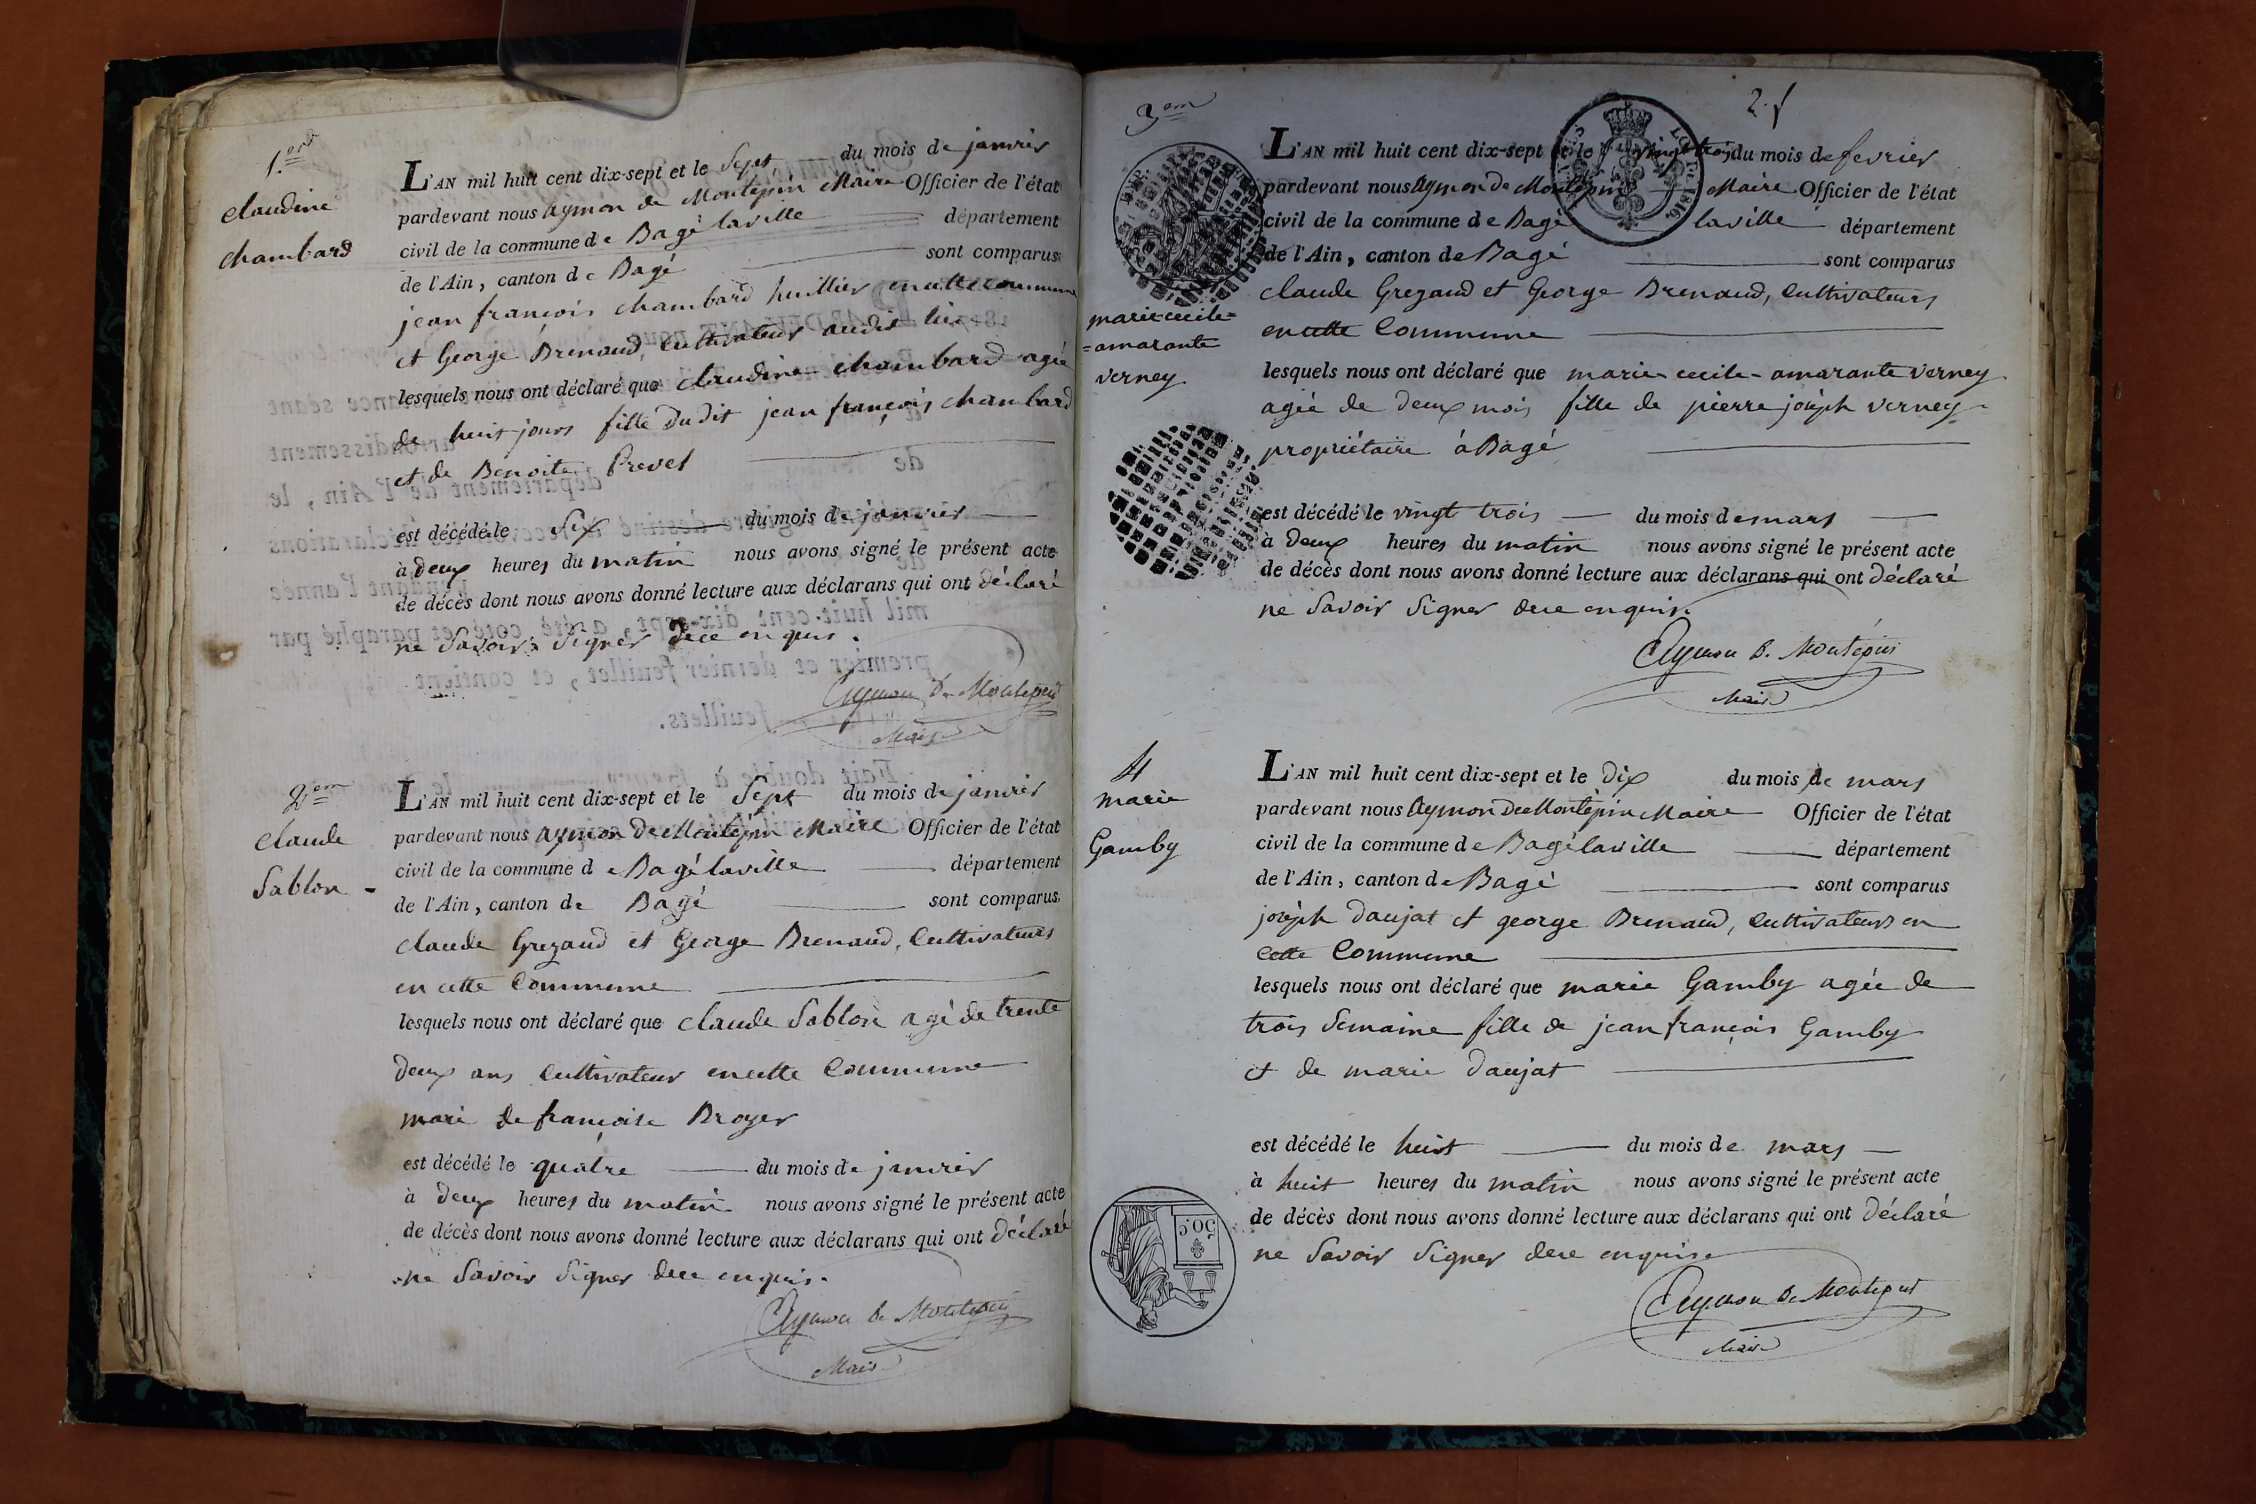 1.er
claudine
chambard
L'AN mil huit cent dix-sept et le Sept du mois de janvier
pardevant nous aymon de Montépin Maire Officier de l'état
civil de la commune de Bagé laville département
de l'Ain, canton de Bagé sont comparus
jean françois chambard huillier en cette commune
et George Brenaud, Cultivateur audit lieu
lesquels nous ont déclaré que claudine chambard agée
de huit jours fille dudit jean françois chambard
et de Benoite Prevel
est décédé le Six du mois de janvier
à deux heures du matin nous avons signé le présent acte
de décès dont nous avons donné lecture aux déclarans qui ont déclaré
ne Savoir Signer de ce enquis.
Aymon de Montépin
Maire
2.em
Claude
Sablon
L'AN mil huit cent dix-sept et le Sept du mois de janvier
pardevant nous aymon de Montépin Maire Officier de l'état
civil de la commune de Bagé laville département
de l'Ain, canton de Bagé sont comparus
claude Grezaud et George Brenaud, Cultivateurs
en cette Commune
lesquels nous ont déclaré que claude Sablon agé de trente
deux ans Cultivateur en cette Commune
mari de françoise Broyer
est décédé le quatre du mois de janvier
à deux heures du matin nous avons signé le présent acte
de décès dont nous avons donné lecture aux déclarans qui ont déclaré
ne Savoir Signer de ce enquis.
Aymon de Montépin
Maire
2.f
3em
marie cecile=
=amarante
verney
L'AN mil huit cent dix-sept et le vingt trois du mois de fevrier
pardevant nous Aymon de Montépin Maire Officier de l'état
civil de la commune de Bagé laville département
de l'Ain, canton de Bagé sont comparus
claude Grezaud et George Brenaud, Cultivateurs
en cette Commune
lesquels nous ont déclaré que marie cecile amarante verney
agée de deux mois fille de pierre joseph verney
propriétaire à Bagé
est décédé le vingt trois du mois de mars
à deux heures du matin nous avons signé le présent acte
de décès dont nous avons donné lecture aux déclarans qui ont déclaré
ne Savoir Signer de ce enquis.
Aymon de Montépin
Maire
4
marie
Gamby
L'AN mil huit cent dix-sept et le dix du mois de mars
pardevant nous Aymon de Montépin Maire Officier de l'état
civil de la commune de Bagé laville département
de l'Ain, canton de Bagé sont comparus
joseph daujat et george Brenaud, Cultivateurs en
cette Commune
lesquels nous ont déclaré que marie Gamby agée de
trois Semaine fille de jean françois Gamby
et de marie daujat
est décédé le huit du mois de mars
à huit heures du matin nous avons signé le présent acte
de décès dont nous avons donné lecture aux déclarans qui ont déclaré
ne Savoir Signer de ce enquis.
Aymon de Montépin
Maire
50.C